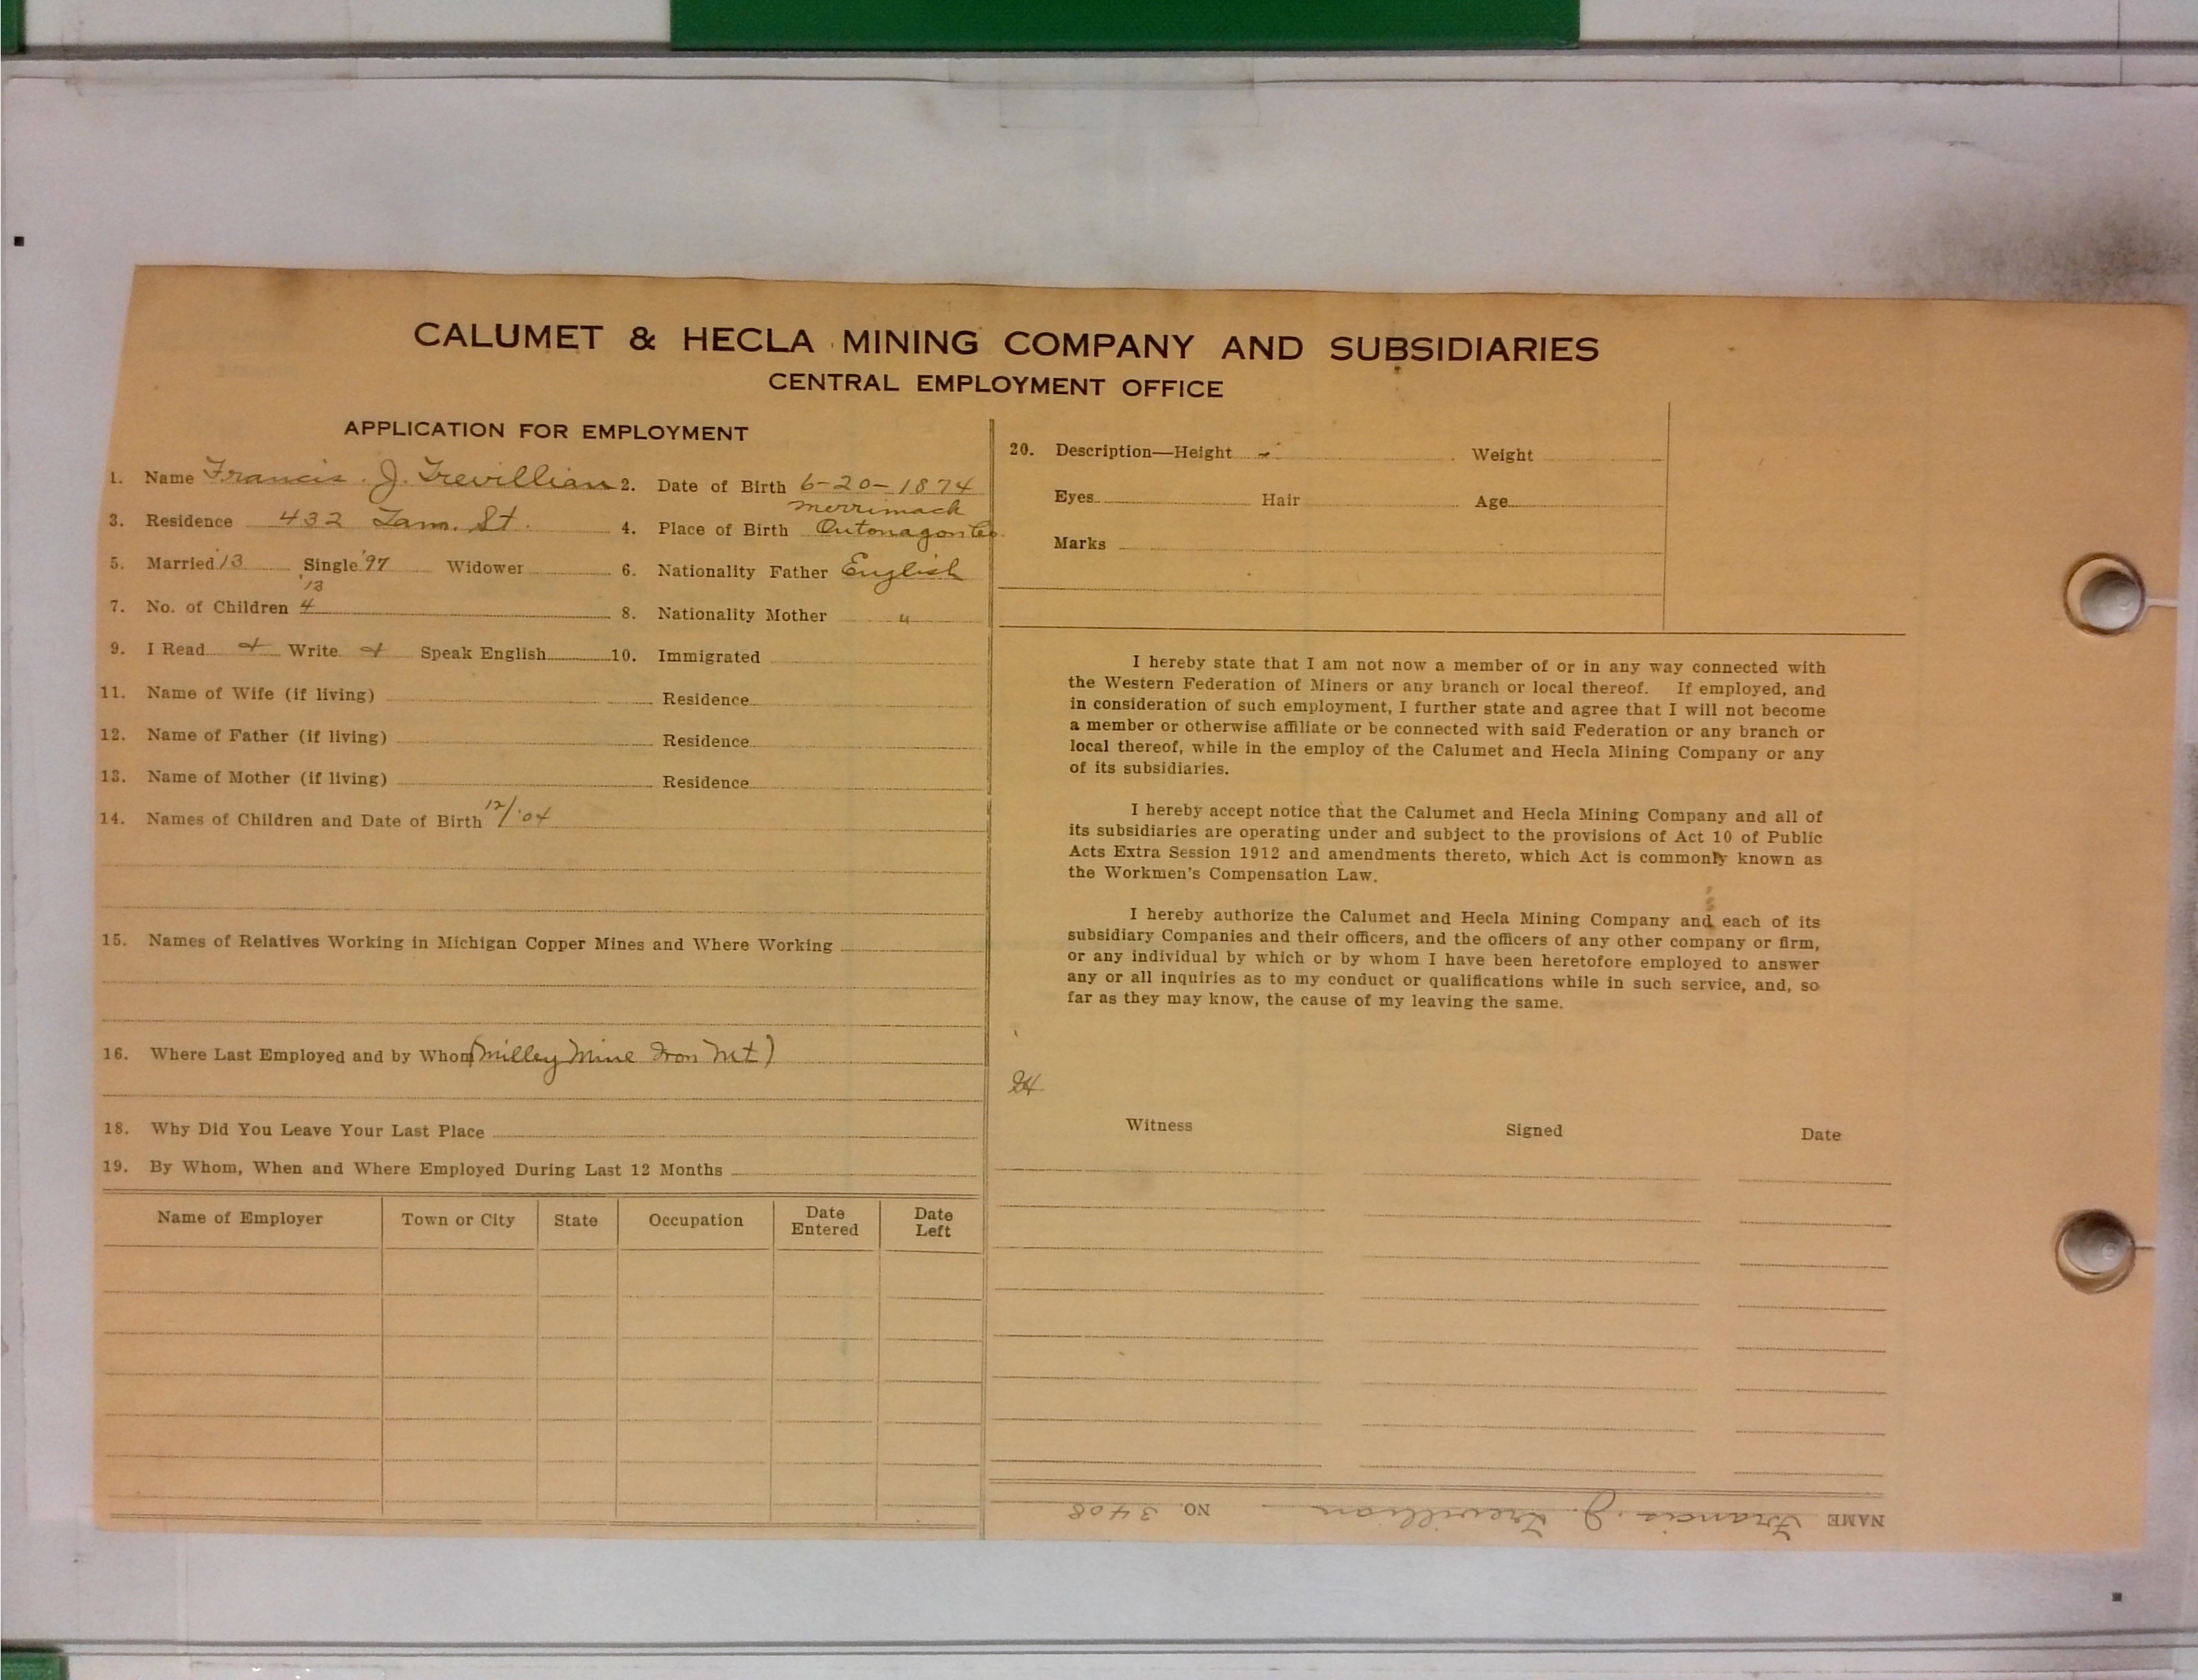 CALUMET & HECLA MINING COMPANY AND SUBSIDIARIES
CENTRAL EMPLOYMENT OFFICE
APPLICATION FOR EMPLOYMENT
1. Name Francis J. Trevillian 2. Date of Birth 6-20-1874
merrimack
3. Residence 432 Tam. St. 4. Place of Birth Ontonagon Co.
5. Married '13 Single '97 Widower 6. Nationality Father English
'13
7. No. of Children 4 8. Nationality Mother "
9. I Read Write Speak English 10. Immigrated
11. Name of Wife (if living) Residence
12. Name of Father (if living) Residence
13. Name of Mother (if living) Residence
14. Names of Children and Date of Birth 12/'04
15. Names of Relatives Working in Michigan Copper Mines and Where Working
16. Where Last Employed and by Whom (Milley Mine Iron Mt)
18. Why Did You Leave Your Last Place
19. By Whom, When and Where Employed During Last 12 Months
Name of Employer Town or City State Occupation Date Entered Date Left
20. Description—Height Weight
Eyes Hair Age
Marks
I hereby state that I am not now a member of or in any way connected with
the Western Federation of Miners or any branch or local thereof. If employed, and
in consideration of such employment, I further state and agree that I will not become
a member or otherwise affiliate or be connected with said Federation or any branch or
local thereof, while in the employ of the Calumet and Hecla Mining Company or any
of its subsidiaries.
I hereby accept notice that the Calumet and Hecla Mining Company and all of
its subsidiaries are operating under and subject to the provisions of Act 10 of Public
Acts Extra Session 1912 and amendments thereto, which Act is commonly known as
the Workmen's Compensation Law.
I hereby authorize the Calumet and Hecla Mining Company and each of its
subsidiary Companies and their officers, and the officers of any other company or firm,
or any individual by which or by whom I have been heretofore employed to answer
any or all inquiries as to my conduct or qualifications while in such service, and, so
far as they may know, the cause of my leaving the same.
Witness Signed Date
NAME Francis J. Trevillian NO. 3408